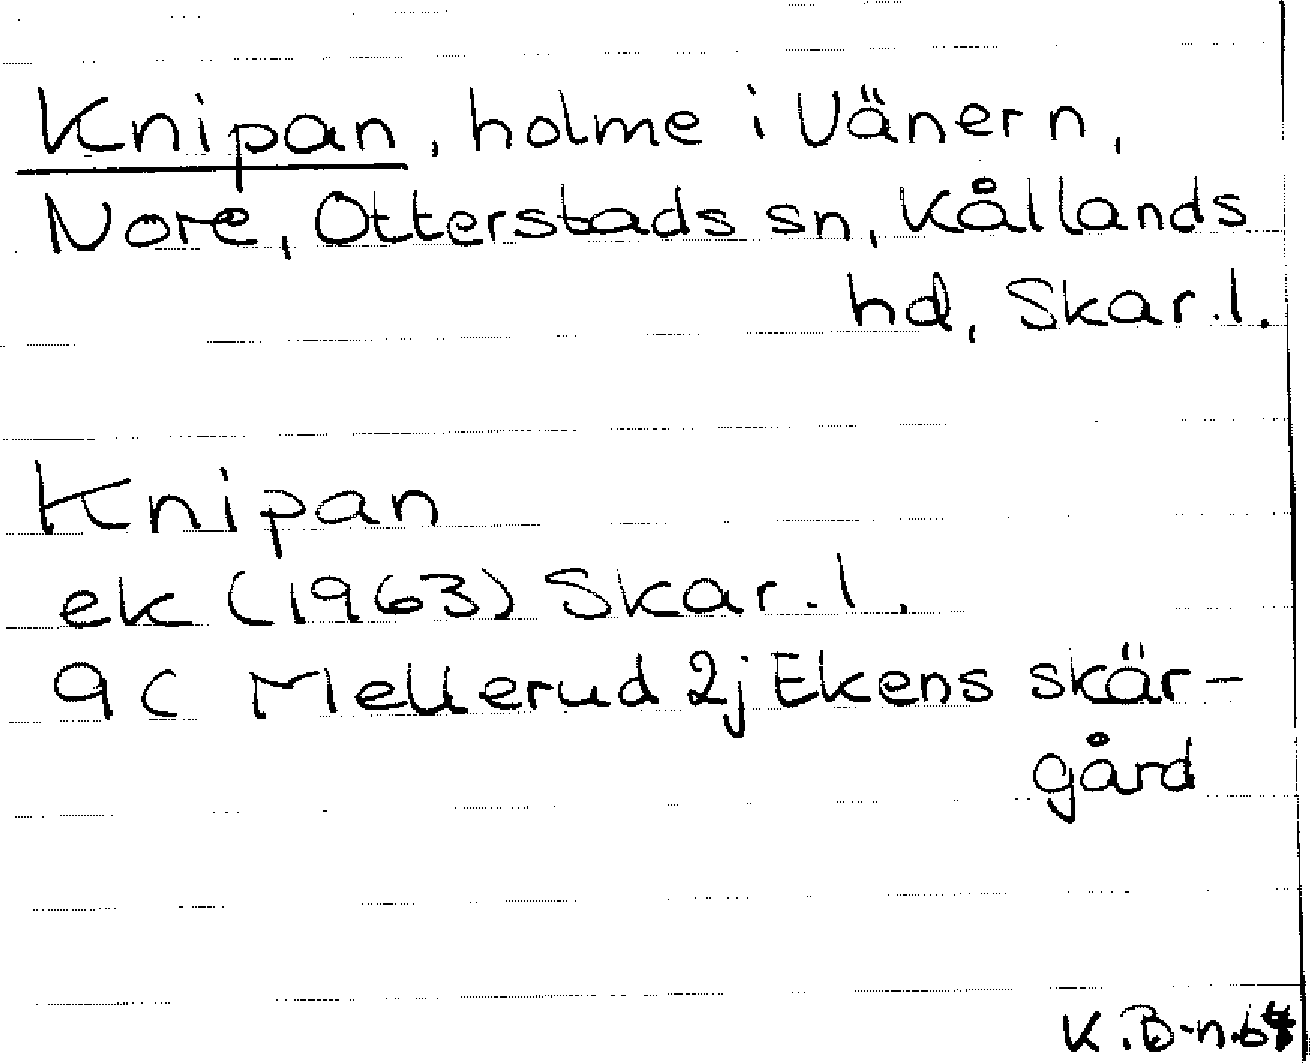 Knipan, holme i Vänern,
Nore, Otterstads sn, Kållands
hd, Skar.l.
Knipan
ek (1963) Skar.l.
9C Mellerud 2j Ekens skär-
gård
K.B-n.